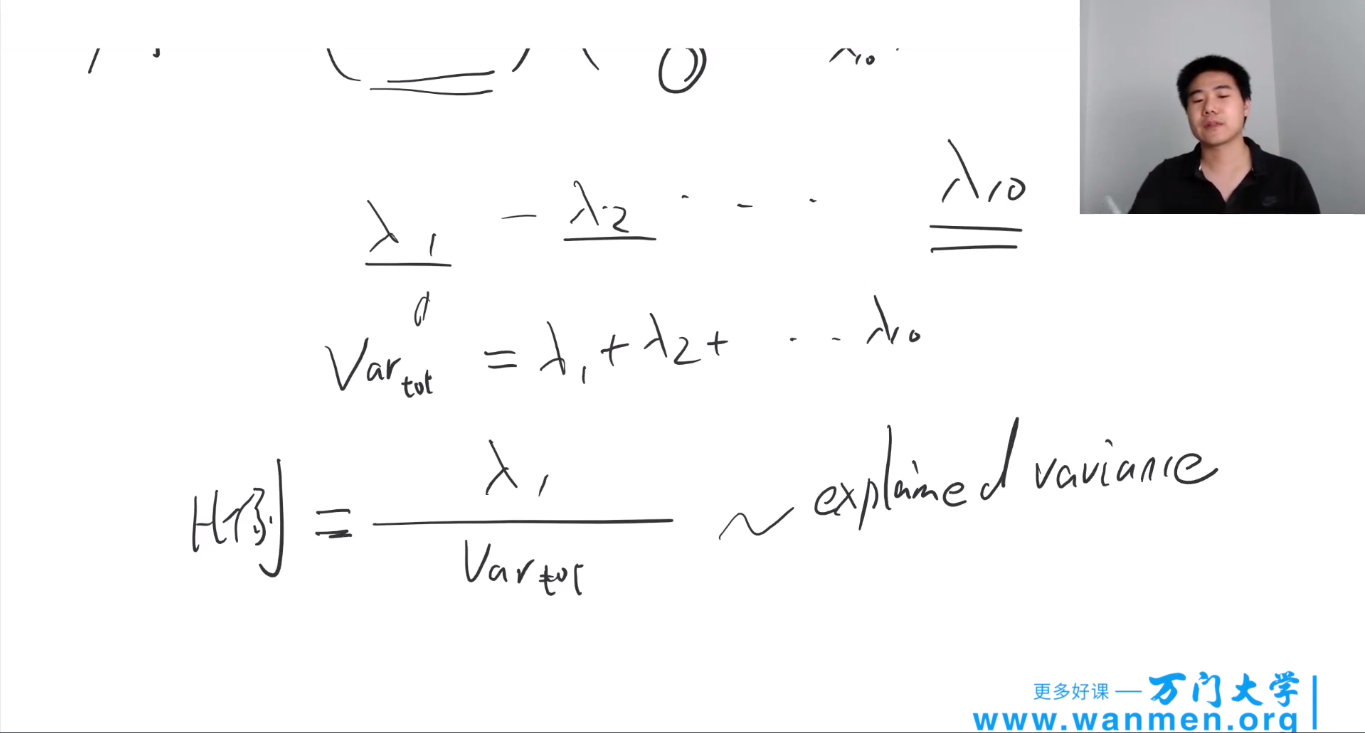 λ10
λ1 - λ2 · - · λ10
σ
Var tot = λ1 + λ2 + · - · λ10
比例 = λ1 / Var tot ~ explained variance
更多好课 — 万门大学
www.wanmen.org